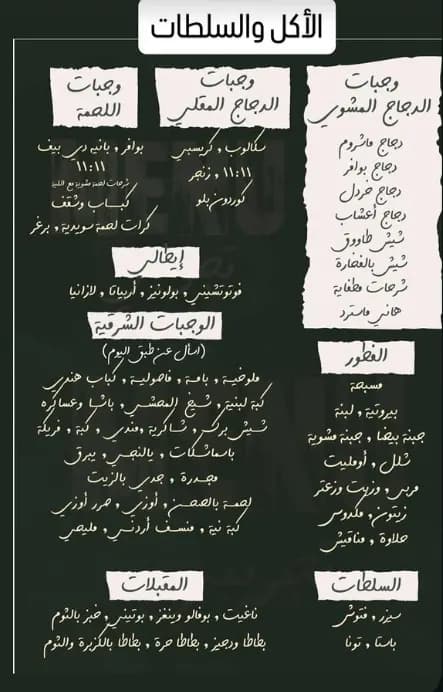 الأكل والسلطات
وجبات
الدجاج المشوي
دجاج ماشروم
دجاج بوافر
دجاج خردل
دجاج أعشاب
شيش طاووق
شيش بالفخارة
شرحات مطفاية
هاني ماسترد
وجبات
الدجاج المقلي
سكالوب, كريسبي
١١:١١ , زنجر
كوردون بلو
وجبات
اللحمة
بوافر, بانيه دي بيف
١١:١١
شرحات لحمة مشوية مع اللية
كباب وشقف
كرات لحمة سويدية, برغر
إيطالي
فوتوتشيني, بولونيز, أربياتا, لازانيا
الوجبات الشرقية
(اسأل عن طبق اليوم)
ملوخية, بامية, فاصولية, كباب هندي
كبة لبنية, شيخ المحشي, باشا وعساكره
شيش برك, شاكرية ومندي, كبة, فريكة
باسماشكات, يالنجي, يبرق
مجدرة, جدي بالزيت
لحمة بالصحن, أوزي, صرر أوزي
كبة نية, منسف أردني, مليحي
الفطور
مسبحة
بيروتية, لبنة
جبنة بيضا, جبنة مشوية
شلل, أومليت
مربى, وزيت وزعتر
زيتون, مكدوس
حلاوة, مناقيش
السلطات
سيزر, فتوش
باستا, تونا
المقبلات
ناغيت, بوفالو وينغز, بوتيني, خبز بالثوم
بطاطا ودجيز, بطاطا حرة, بطاطا بالكزبرة والثوم